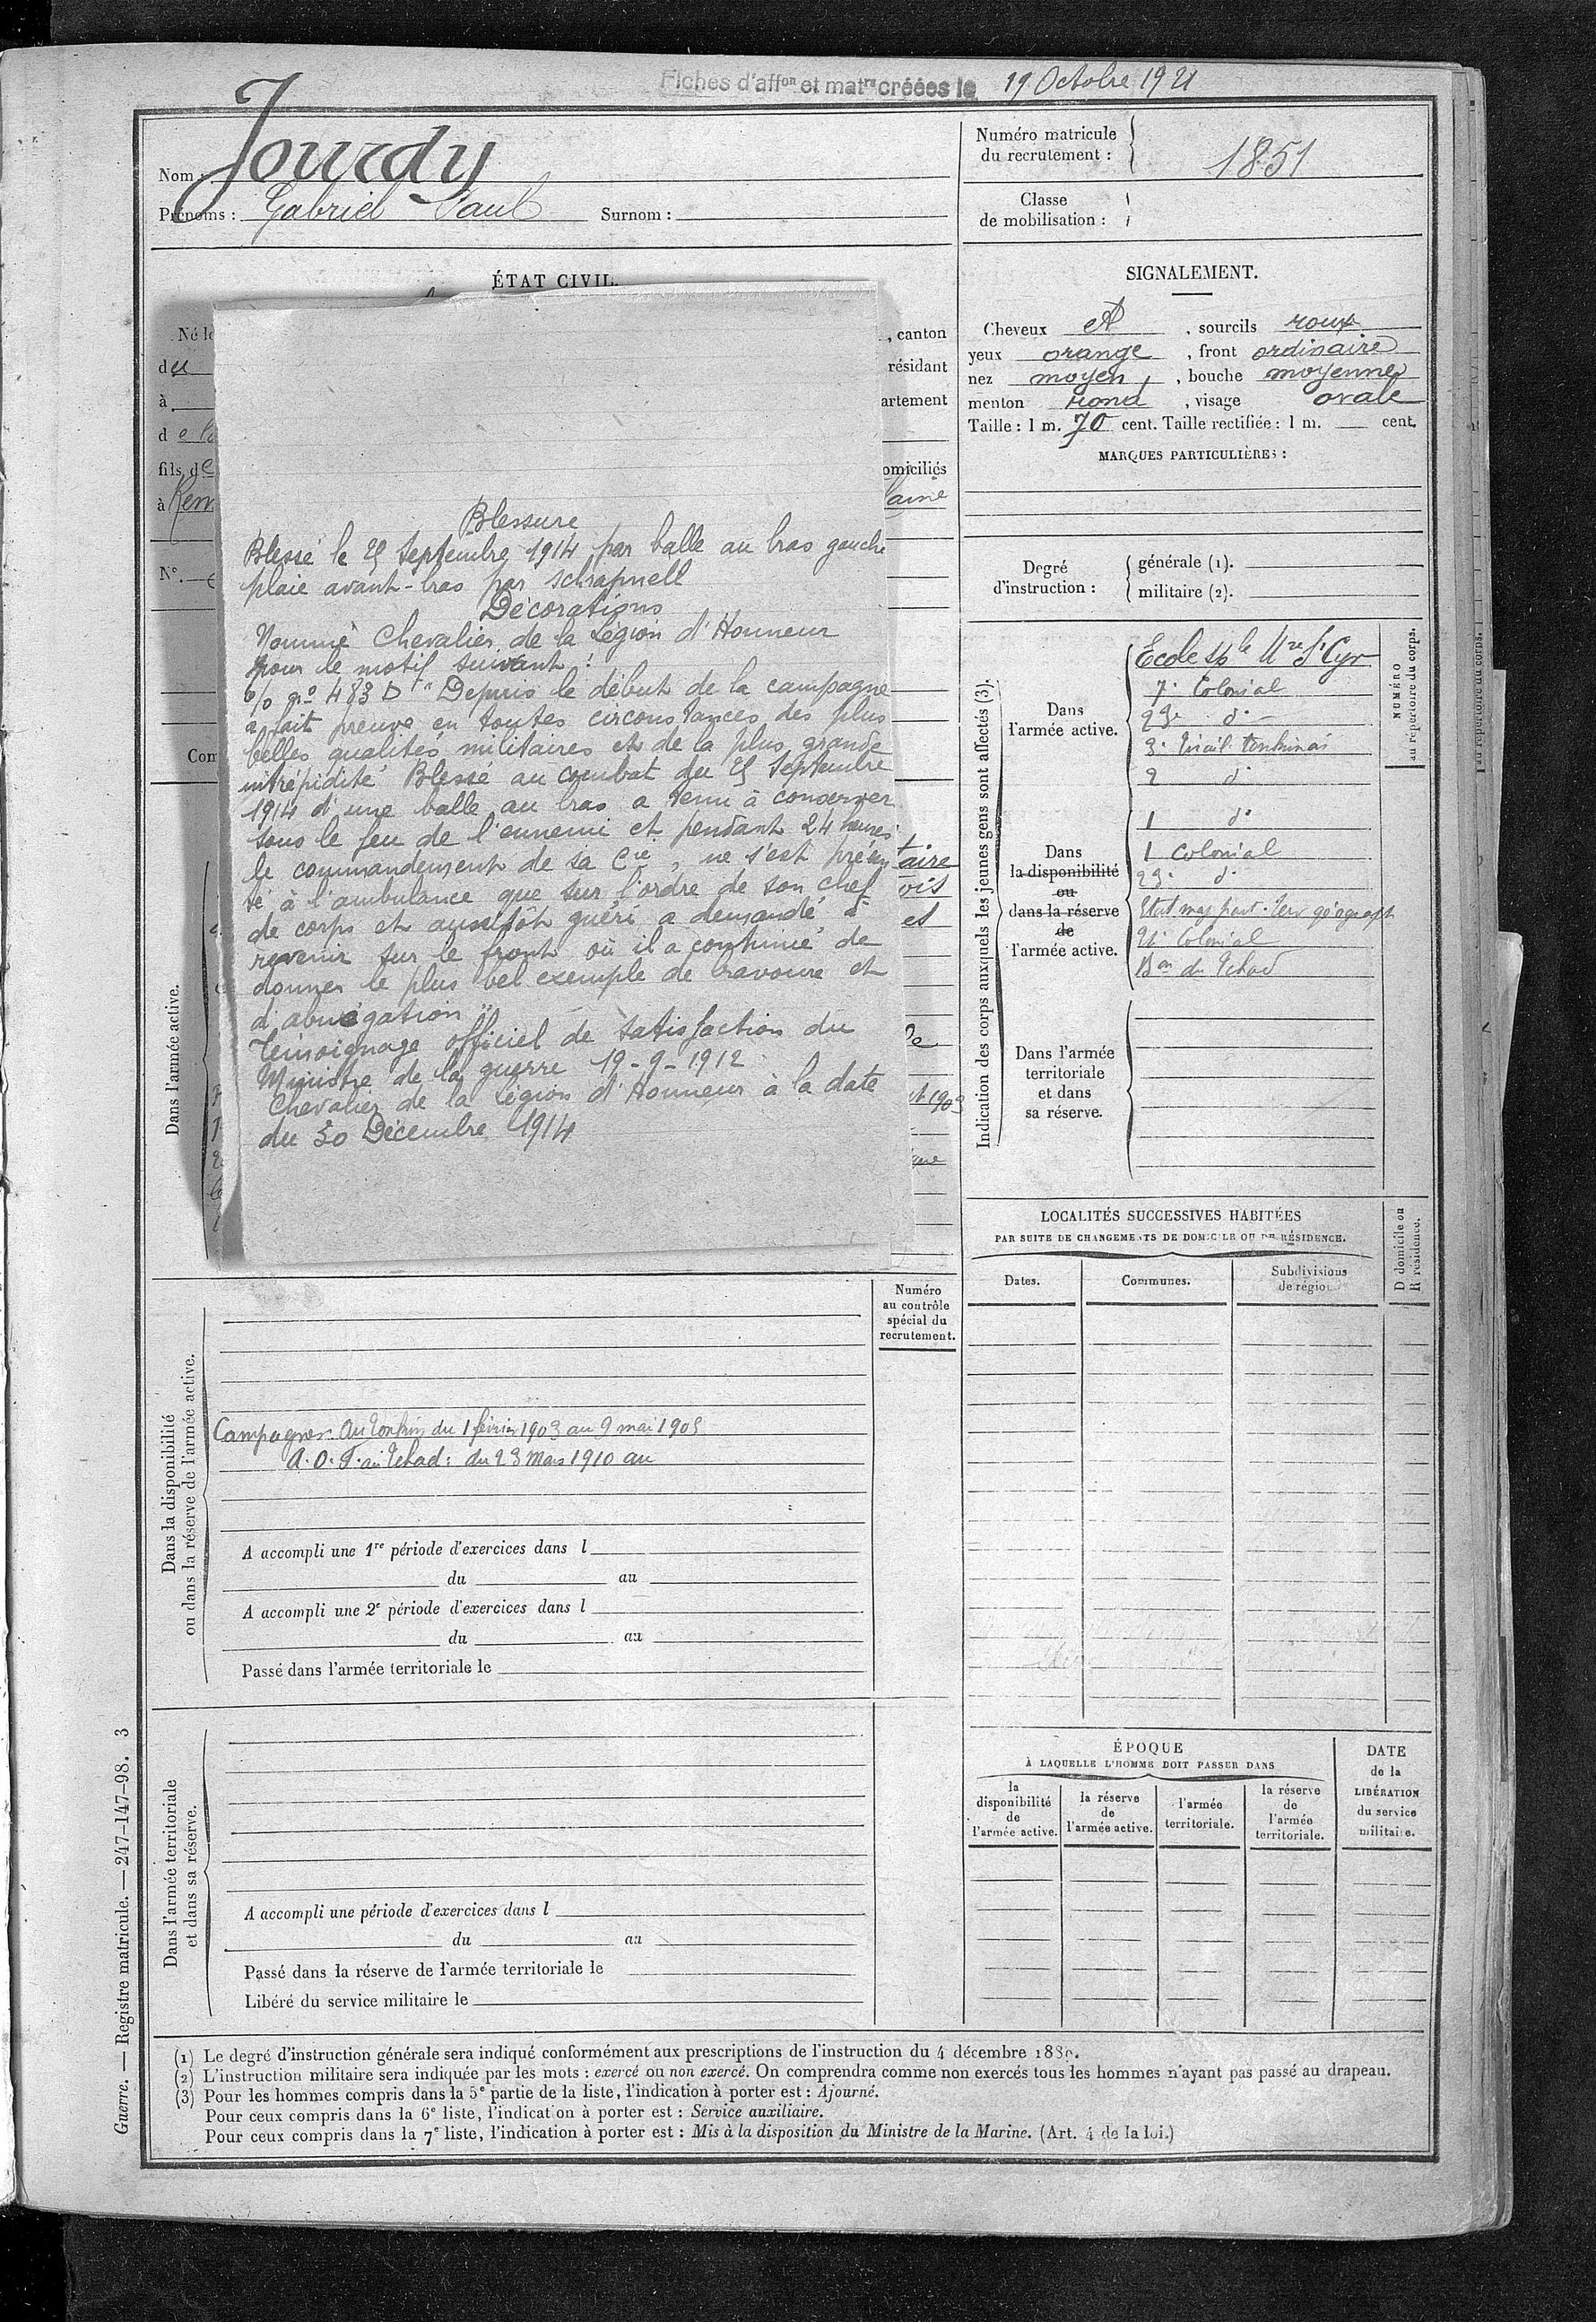 Fiches d'affon et matre créées le 19 Octobre 1921
Nom : Jourdy
Prénoms : Gabriel Paul Surnom :
Numéro matricule
du recrutement : 1851
Classe
de mobilisation :
ÉTAT CIVIL.
Né le
du
à
d e la
fils de
à Renn
N°.
Com
, canton
résidant
artement
omiciliés
laine
Blessure
Blessé le 25 Septembre 1914 par balle au bras gauche
plaie avant-bras par schrapnell
Décorations
Nommé Chevalier de la Légion d'Honneur
pour le motif suivant :
o/o no 483 D "Depuis le début de la campagne
a fait preuve en toutes circonstances des plus
belles qualités militaires et de la plus grande
intrépidité Blessé au combat du 25 Septembre
1914 d'une balle au bras a tenu à conserver
sous le feu de l'ennemi et pendant 24 heures
le commandement de sa Cie, ne s'est présen
té à l'ambulance que sur l'ordre de son chef
de corps et aussitôt guéri a demandé à
revenir sur le front où il a continué de
donner le plus bel exemple de bravoure et
d'abnégation"
Témoignage officiel de satisfaction du
Ministre de la guerre 19-9-1912
Chevalier de la Légion d'Honneur à la date
du 30 Décembre 1914
taire
vis
es
De
1903
que
Dans l'armée active.
SIGNALEMENT.
Cheveux , sourcils roux
yeux orange , front ordinaire
nez moyen , bouche moyenne
menton rond , visage ovale
Taille : 1 m. 70 cent. Taille rectifiée : 1 m. cent.
MARQUES PARTICULIÈRES :
Degré
d'instruction :
générale (1).
militaire (2).
Indication des corps auxquels les jeunes gens sont affectés (3).
NUMÉRO
au répertoire du corps.
Dans
l'armée active.
Ecole Sple Mre St Cyr
7e Colonial
23e do
3e Tirail. tonkinois
2 do
1 do
Dans
la disponibilité
ou
dans la réserve
de
l'armée active.
1 Colonial
23e do
Etat maj part. Serv géograph
21e Colonial
Bon du Tchad
Dans l'armée
territoriale
et dans
sa réserve.
LOCALITÉS SUCCESSIVES HABITÉES
PAR SUITE DE CHANGEMENTS DE DOMICILE OU DE RÉSIDENCE.
Dates.
Communes.
Subdivisions
de région.
D domicile ou
R résidence.
Numéro
au contrôle
spécial du
recrutement.
Dans la disponibilité
ou dans la réserve de l'armée active.
Campagnes. Au Tonkin du 1 février 1903 au 9 mai 1905
A. O. F. au Tchad : du 23 Mars 1910 au
A accompli une 1re période d'exercices dans l
du au
A accompli une 2e période d'exercices dans l
du au
Passé dans l'armée territoriale le
Dans l'armée territoriale
et dans sa réserve.
A accompli une période d'exercices dans l
du au
Passé dans la réserve de l'armée territoriale le
Libéré du service militaire le
ÉPOQUE
À LAQUELLE L'HOMME DOIT PASSER DANS
la
disponibilité
de
l'armée active.
la réserve
de
l'armée active.
l'armée
territoriale.
la réserve
de
l'armée
territoriale.
DATE
de la
LIBÉRATION
du service
militaire.
(1) Le degré d'instruction générale sera indiqué conformément aux prescriptions de l'instruction du 4 décembre 1889.
(2) L'instruction militaire sera indiquée par les mots : exercé ou non exercé. On comprendra comme non exercés tous les hommes n'ayant pas passé au drapeau.
(3) Pour les hommes compris dans la 5e partie de la liste, l'indication à porter est : Ajourné.
Pour ceux compris dans la 6e liste, l'indication à porter est : Service auxiliaire.
Pour ceux compris dans la 7e liste, l'indication à porter est : Mis à la disposition du Ministre de la Marine. (Art. 4 de la loi.)
Guerre. — Registre matricule. — 247-147-98. 3